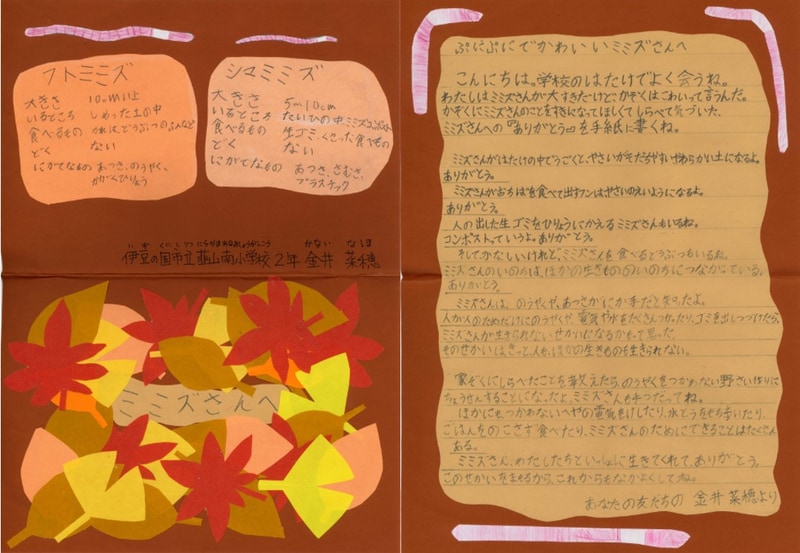 フトミミズ
大きさ 10cm以上
いるところ しめった土の中
食べるもの かれは、どうぶつのふんなど
どく ない
にがてなもの あつさ、のうやく、
かがくひりょう
シマミミズ
大きさ 5~10cm
いるところ たいひの中
食べるもの 生ゴミ、くさった食べもの
どく ない
にがてなもの あつさ、さむさ、
プラスチック
伊豆の国市立韮山南小学校2年 金井 菜穂
ミミズさんへ
ぷにぷにでかわいいミミズさんへ
こんにちは。学校のはたけでよく会うね。
わたしはミミズさんが大すきだけど、かぞくはこわいって言うんだ。
かぞくにミミズさんのことをすきになってほしくてしらべて気づいた、
ミミズさんへの『ありがとう』を手紙に書くね。
ミミズさんがはたけの中でうごくと、やさいがそだちやすいやわらかい土になるよ。
ありがとう。
ミミズさんがおちばを食べて出すフンはやさいのえいようになるよ。
ありがとう。
人の出した生ゴミをひりょうにかえるミミズさんもいるね。
コンポストっていうよ。ありがとう。
そして、かなしいけれど、ミミズさんを食べるどうぶつもいるね。
ミミズさんのいのちは、ほかの生きもののいのちにつながっている。
ありがとう。
ミミズさんは、のうやくや、あつさがにが手だと知ったよ。
人が人のためだけにのうやく、電気や水をたくさんつかったり、ゴミを出しつづけたら、
ミミズさんが生きられないせかいになるかもって思った。
そのせかいはきっと、人も、ほかの生きものも生きられない。
家ぞくにしらべたことを教えたら、のうやくをつかわない野さい作りに
ちょうせんすることになったよ。ミミズさんも手つだってね。
ほかにもつかわないへやの電気をけしたり、水とうをもち歩いたり、
ごはんをのこさず食べたり、ミミズさんのためにできることはたくさん
ある。
ミミズさん、わたしたちといっしょに生きてくれて、ありがとう。
このせかいをまもるから、これからもなかよくしてね。
あなたの友だちの 金井 菜穂より